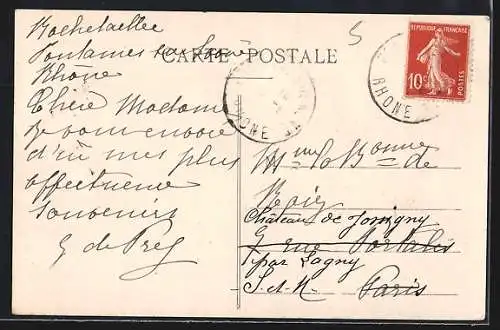 Rochetaillée
Fontaines sur Saône
Rhône
CARTE POSTALE
Chère Madame
Je vous envoie
d'ici mes plus
affectueux
souvenirs
G de
Mme la Bonne de
Château de Jossigny
rue Portalis
par Lagny
S.-et-M. Paris
REPUBLIQUE FRANÇAISE
10c
POSTES
RHONE
RHONE
5